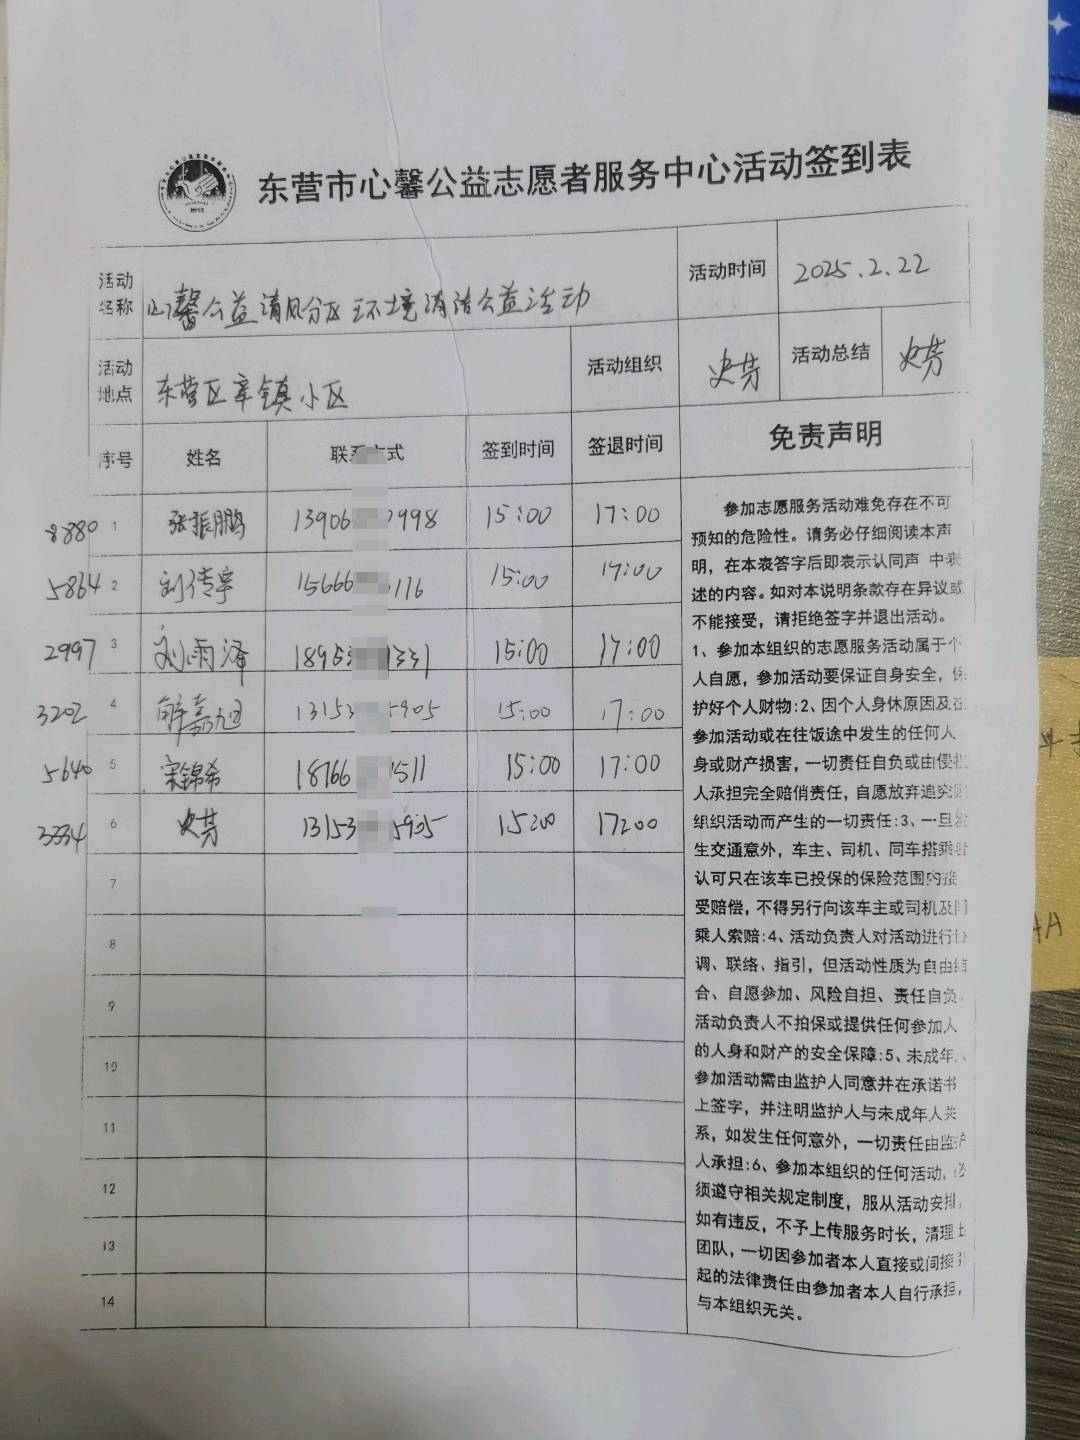 东营市心馨公益志愿者服务中心活动签到表
活动名称
心馨公益清风分队环境清洁公益活动
活动时间
2025.2.22
活动地点
东营区辛镇小区
活动组织
史芳
活动总结
史芳
序号 姓名 联系方式 签到时间 签退时间
8880 1 张振鹏 13906 7998 15:00 17:00
5864 2 刘传宇 15666 6116 15:00 17:00
2997 3 刘雨泽 1895 1331 15:00 17:00
3202 4 解嘉旭 13153 5905 15:00 17:00
5640 5 宋锦希 18766 1511 15:00 17:00
3334 6 史芳 13153 5905 15:00 17:00
7
8
9
10
11
12
13
14
免责声明
参加志愿服务活动难免存在不可
预知的危险性。请务必仔细阅读本声
明，在本表签字后即表示认同声 中表
述的内容。如对本说明条款存在异议或
不能接受，请拒绝签字并退出活动。
1、参加本组织的志愿服务活动属于个
人自愿，参加活动要保证自身安全，保
护好个人财物:2、因个人身体原因及在
参加活动或在往饭途中发生的任何人
身或财产损害，一切责任自负或由侵权
人承担完全赔俏责任，自愿放弃追究因
组织活动而产生的一切责任:3、一旦发
生交通意外，车主、司机、同车搭乘者
认可只在该车已投保的保险范围内接
受赔偿，不得另行向该车主或司机及同
乘人索赔:4、活动负责人对活动进行协
调、联络、指引，但活动性质为自由结
合、自愿参加、风险自担、责任自负。
活动负责人不拍保或提供任何参加人
的人身和财产的安全保障:5、未成年人
参加活动需由监护人同意并在承诺书
上签字，并注明监护人与未成年人关
系，如发生任何意外，一切责任由监护
人承担:6、参加本组织的任何活动，必
须遵守相关规定制度，服从活动安排，
如有违反，不予上传服务时长，清理出
团队，一切因参加者本人直接或间接引
起的法律责任由参加者本人自行承担，
与本组织无关。